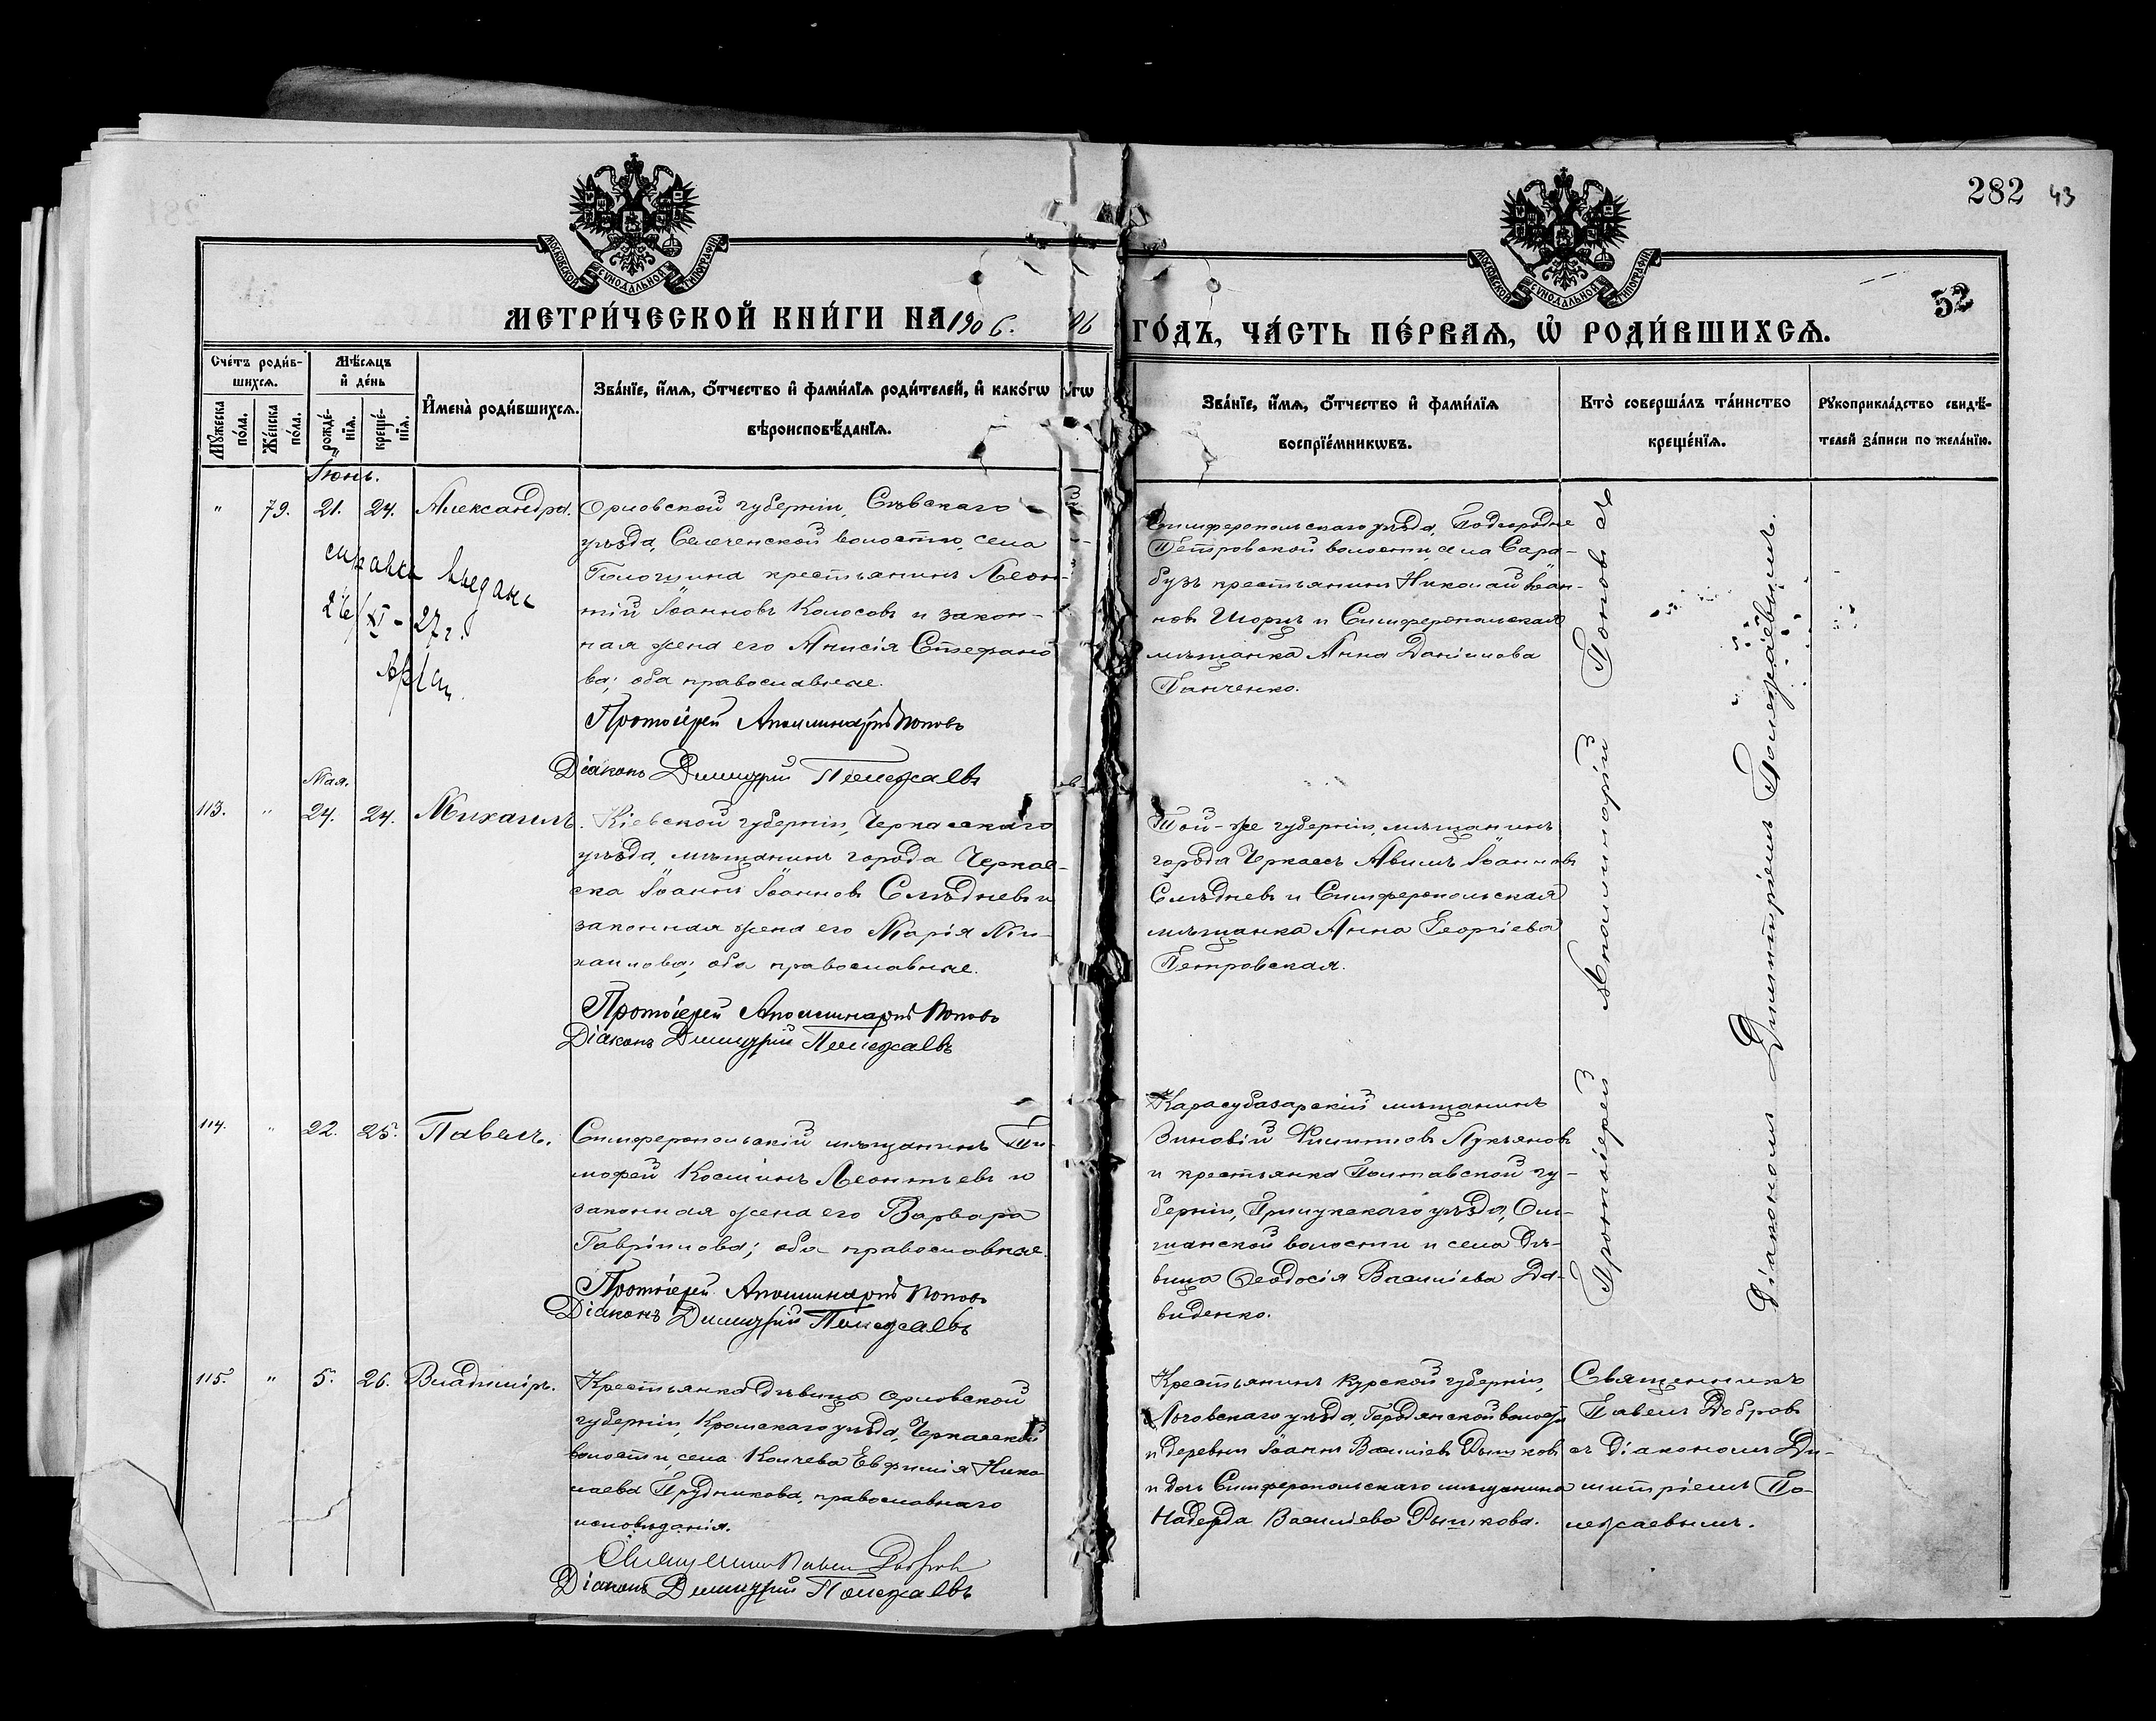 282 43
52
МОСКОВСКОЙ СѴНОДАЛЬНОЙ ТИПОГРАФІИ
МОСКОВСКОЙ СѴНОДАЛЬНОЙ ТИПОГРАФІИ
МЕТРИ́ЧЕСКОЙ КНИ́ГИ НА 1906. 06 ГО́ДЪ, ЧА́СТЬ ПЕ́РВАѦ, Ѡ҆ РОДИ́ВШИХСѦ.
Сче́тъ роди́в-
шихсѧ.
Мꙋ́жеска
по́ла.
Же́нска
по́ла.
Мѣ́сѧцъ
и҆ де́нь
рожде́-
нїѧ.
креще́-
нїѧ.
И҆мена̀ роди́вшихсѧ.
Зва́нїе, и҆́мѧ, ѻ҆́тчество и҆ фами́лїѧ роди́телей, и҆ како́гѡ
вѣроисповѣ́данїѧ.
Зва́нїе, и҆́мѧ, ѻ҆́тчество и҆ фами́лїѧ
воспрїе́мникѡвъ.
Кто̀ соверша́лъ та́инство
креще́нїѧ.
Рꙋкоприкла́дство свидѣ́-
телей за́писи по жела́нїю.
Іюнь.
" 79. 21. 24. Александра.
Орловской губерніи, Сѣвскаго
уѣзда, Селеченской волости, села
крестьянинъ Леон-
тій Іоанновъ Колосовъ и закон-
ная жена его Анисія Стефано
ва; оба православные.
Протоіерей Аполлинарій Поповъ
Діаконъ Димитрій Полежаевъ
справка выдана
27 г.
Симферопольскаго уѣзда, Подгородне
Петровской волости села Сара-
бузъ крестьянинъ Николай Іоан-
новъ и Симферопольская
мѣщанка Анна Даніилова
Ганченко.
Протоіерей Аполлинарій Поповъ съ
Діакономъ Димитріемъ Полежаевымъ.
Мая.
113. " 24. 24. Михаилъ.
Кіевской губерніи, Черкасскаго
уѣзда, мѣщанинъ города Черкас-
ска Іоаннъ Іоанновъ Слѣдневъ и
законная жена его Марія Ми-
хаилова; оба православные.
Протоіерей Аполлинарій Поповъ
Діаконъ Димитрій Полежаевъ
Той-же губерніи, мѣщанинъ
города Черкассъ Іоанновъ
Слѣдневъ и Симферопольская
мѣщанка Анна Георгіева
Петровская.
114. " 22. 25. Павелъ.
Симферопольскій мѣщанинъ Ти-
мофей Косминъ Леонтьевъ и
законная жена его Варвара
Гавріилова; оба православные.
Протоіерей Аполлинарій Поповъ
Діаконъ Димитрій Полежаевъ
Карасубазарскій мѣщанинъ
Зиновій Филипповъ Лукьяновъ
и крестьянка Полтавской гу-
берніи, Прилукскаго уѣзда, Оль-
шанской волости и села дѣ-
вица Ѳеодосія Василіева Да-
виденко.
115. " 5. 26. Владиміръ.
Крестьянка дѣвица Орловской
губерніи, Кромскаго уѣзда, Черкасской
волости, села Колчева Евфимія Нико-
лаева Прудникова, православнаго
исповѣданія.
Священникъ Павелъ Добровъ
Діаконъ Димитрій Полежаевъ
Крестьянинъ Курской губерніи,
Льговскаго уѣзда, волости
и деревни Іоаннъ Василіевъ Рышковъ
и дочь Симферопольскаго мѣщанина
Надежда Василіева Рышкова.
Священникъ
Павелъ Добровъ
съ Діакономъ Ди-
митріемъ По-
лежаевымъ.